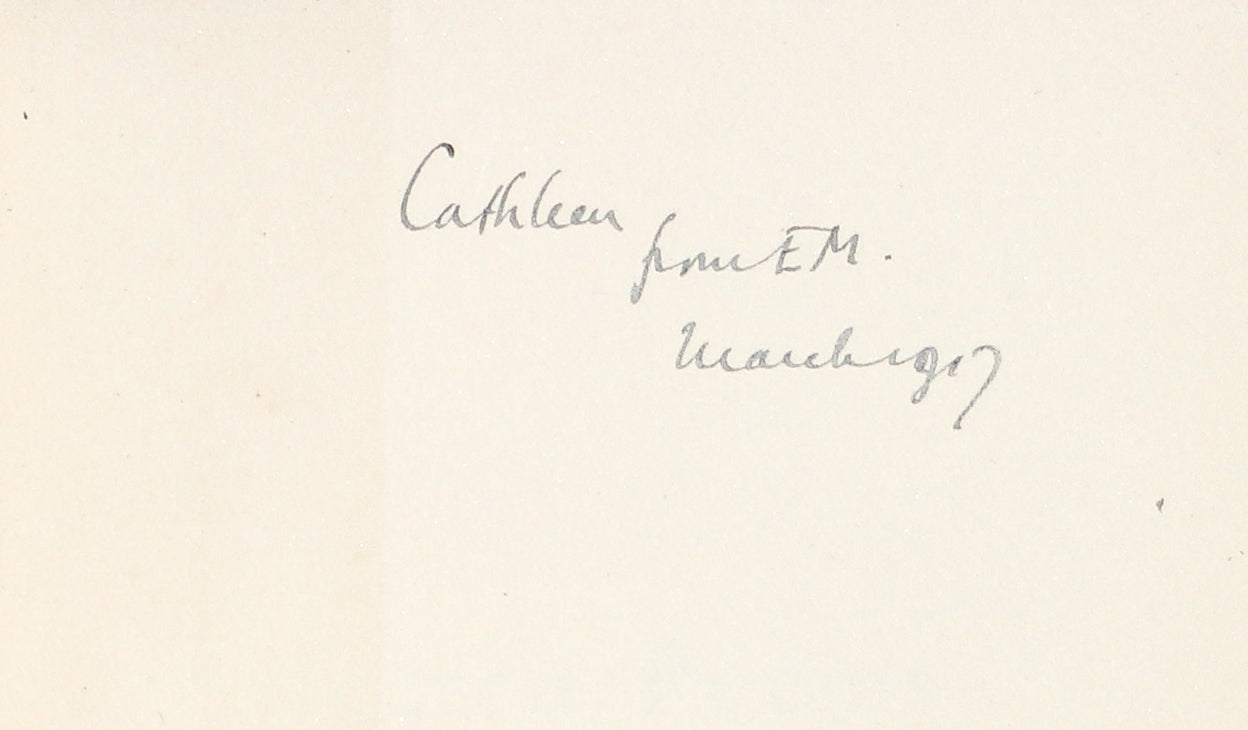 Cathleen
from EM.
March 1917